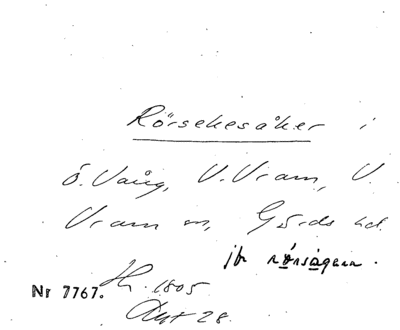 Rörsekesåker i
Ö. Vång, V. Vram, V.
Vram sn, Gärds hd.
jfr rörsågen.
Nr 7767. Hr. 1805
Akt 28.